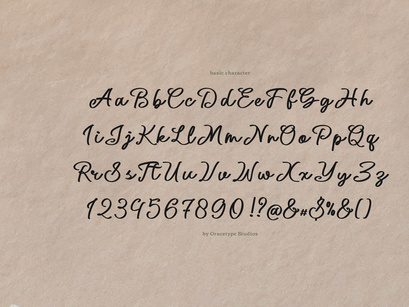 basic character
AaBbCcDdEeFfGgHh
IiJjKkLlMmNnOoPpQq
RrSsTtUuVvWwXxYyZz
1234567890!?@&#$%&()
by Gracetype Studios